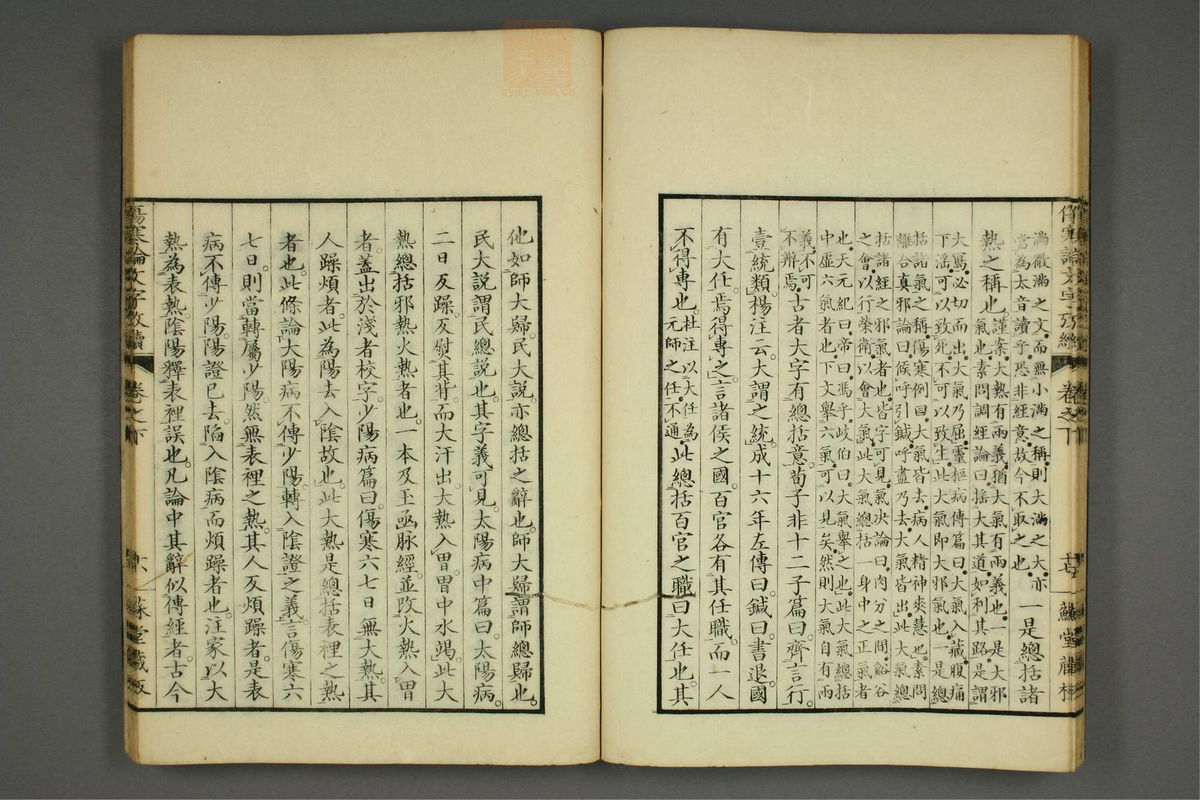 滿敵滿之文而無小滿之稱則大滿之大亦
當為太音讀乎恐非經意故今不取之也 一是總括諸
熱之稱也 謹案大熱有兩義猶大氣有兩義也一是大邪
氣也素問調經論曰搖大其道如利其路是謂
大寫必切而出大氣乃屈靈樞病傳篇曰大氣入藏腹痛
下淫可以致死不可以致生此大氣即大邪氣也一是總
括諸氣之稱傷寒例曰大氣皆去病人精神爽慧也素問
離合真邪論曰候呼引鍼呼盡乃去大氣皆出此大氣總
括諸經之邪氣者也皆字可見氣穴論曰肉分之間谿谷
之會以行榮衛以會大氣此大氣總括一身中之正氣者
也天元紀曰帝曰馮乎岐伯曰大氣舉之也此大氣總括
中虛六氣者也下文舉六氣可以見矣然則大氣自有兩
義不可
不辨焉 古者大字有總括意荀子非十二子篇曰齊言行
壹統類楊注云大謂之統成十六年左傳曰鍼曰書退國
有大任焉得專之言諸侯之國百官各有其任職而一人
不得專也 杜注以大任為
元師之任不通 此總括百官之職曰大任也其
他如師大歸民大說亦總括之辭也師大歸謂師總歸也
民大說謂民總說也其字義可見太陽病中篇曰太陽病
二日反躁反熨其背而大汗出大熱入胃胃中水竭此大
熱總括邪熱火熱者也一本及玉函脉經並改火熱入胃
者蓋出於淺者校字少陽病篇曰傷寒六七日無大熱其
人躁煩者此為陽去入陰故也此大熱是總括表裡之熱
者也此條論太陽病不傳少陽轉入陰證之義言傷寒六
七日則當轉屬少陽然無表裡之熱其人反煩躁者是表
病不傳少陽陽證已去陷入陰病而煩躁者也注家以大
熱為表熱陰陽釋表裡誤也凡論中其辭似傳經者古今
傷寒論文字攷續 卷之下